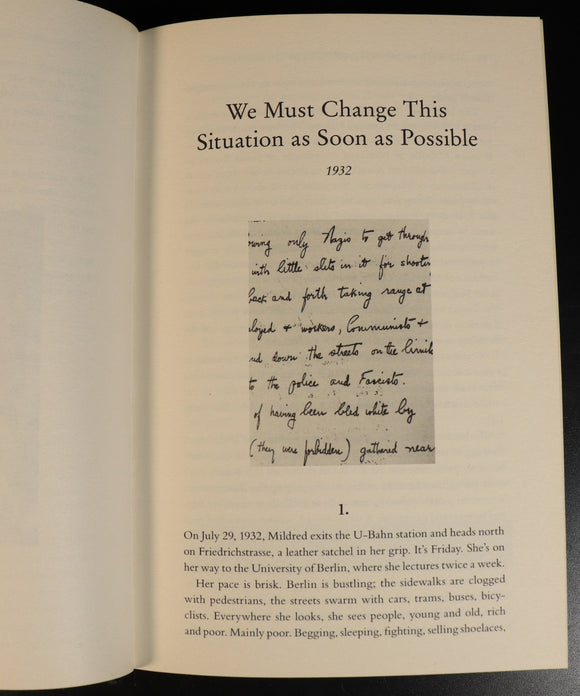 We Must Change This
Situation as Soon as Possible
1932
owing only Nazis to get through
with little slits in it for shooter
back and forth taking range at
loyed & workers, Communists +
nd down the streets on the limit
to the police and Fascists.
of having been bled white by
(they were forbidden) gathered near
1.
On July 29, 1932, Mildred exits the U-Bahn station and heads north
on Friedrichstrasse, a leather satchel in her grip. It's Friday. She's on
her way to the University of Berlin, where she lectures twice a week.
Her pace is brisk. Berlin is bustling; the sidewalks are clogged
with pedestrians, the streets swarm with cars, trams, buses, bicy-
clists. Everywhere she looks, she sees people, young and old, rich
and poor. Mainly poor. Begging, sleeping, fighting, selling shoelaces,